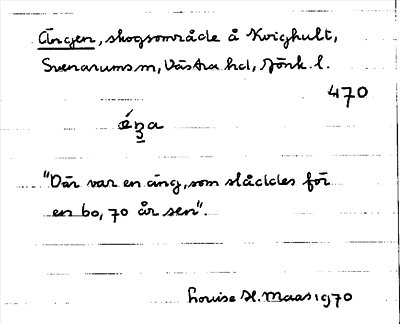 Ängen, skogsområde å Kvighult,
Svenarums sn, Västra hd, Jönk. l.
470
"Där var en äng, som slåddes för
en 60, 70 år sen".
Louise H. Maas 1970